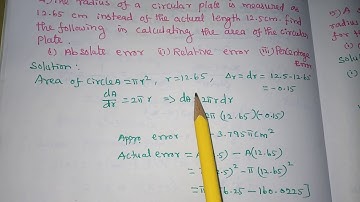 The radius of a circular plate is measured as
12.65 cm instead of the actual length 12.5cm. find
the following in calculating the area of the circular
Plate.
(i) Absolute error (ii) Relative error (iii) Percentage Error
Solution:
Area of circle A = πr², r = 12.65, Δr = dr = 12.5-12.65
= -0.15
dA/dr = 2πr ⇒ dA = 2πr dr
2π (12.65) (-0.15)
Appro error - 3.795π cm²
Actual error = A( .5) - A(12.65)
= .5)² - π(12.65)²
= π[ 6.25 - 160.0225]